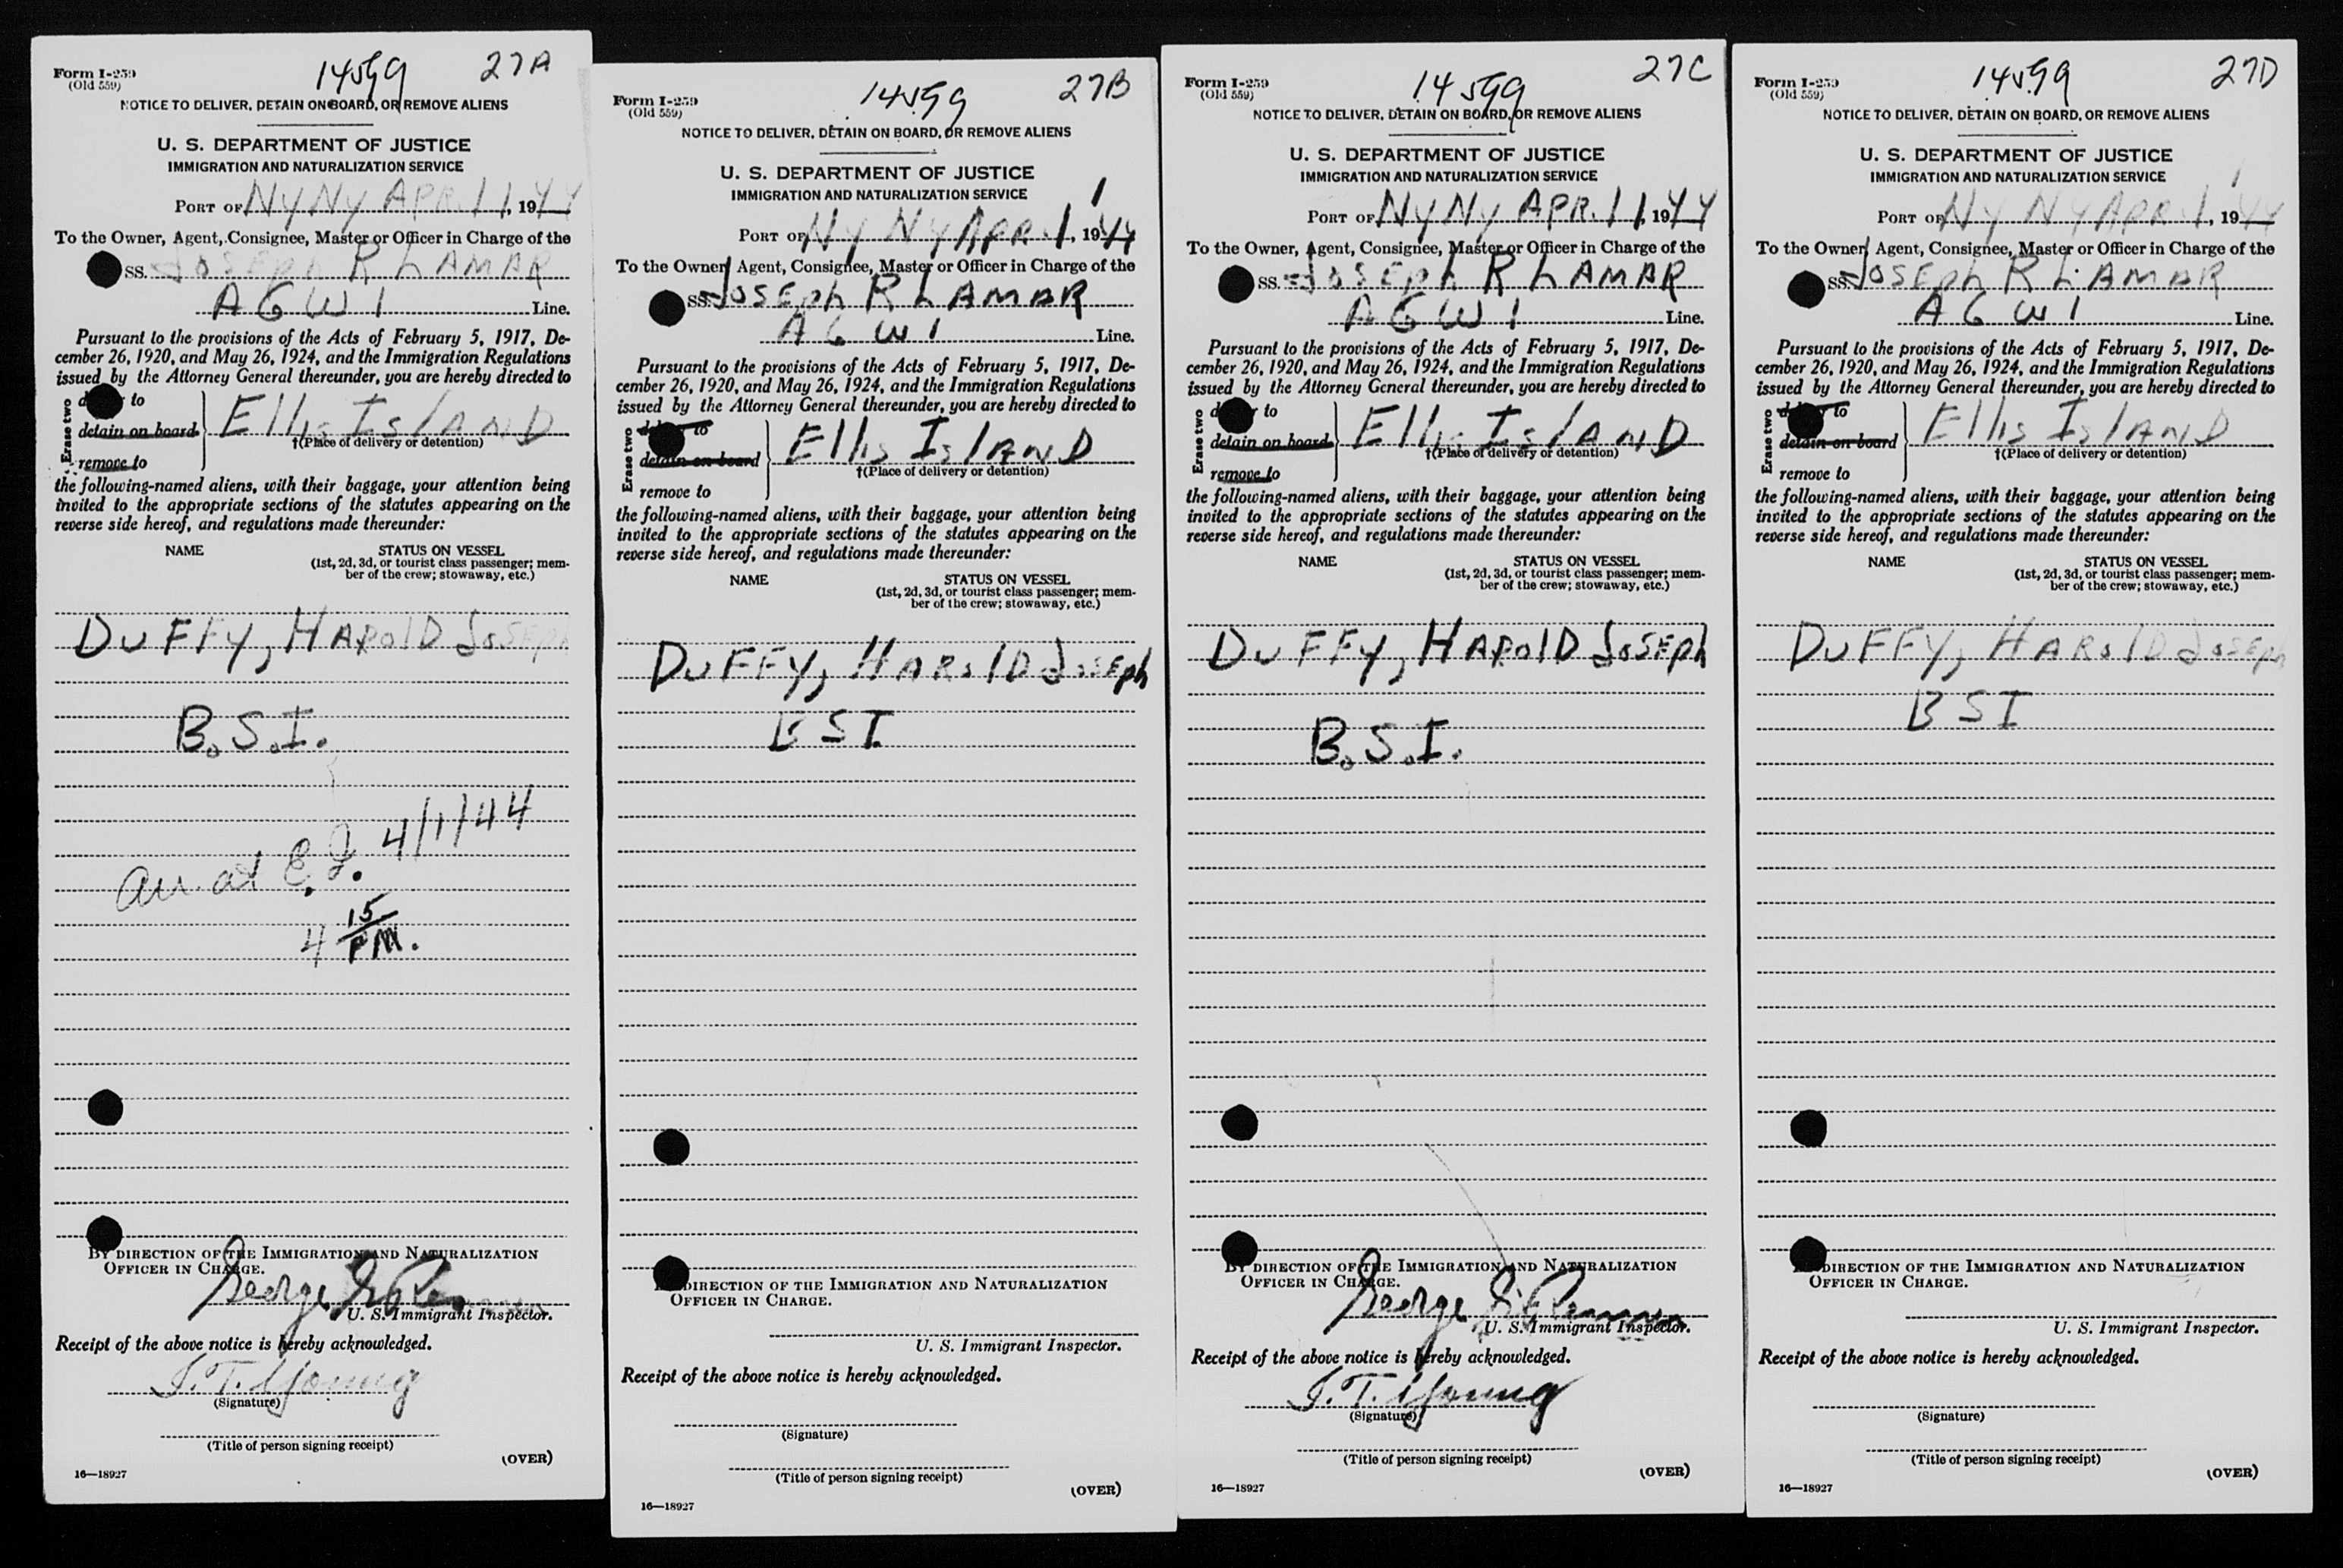 14599 27A
Form I-259
(Old 559)
NOTICE TO DELIVER, DETAIN ON BOARD, OR REMOVE ALIENS
U. S. DEPARTMENT OF JUSTICE
IMMIGRATION AND NATURALIZATION SERVICE
PORT OF NY NY APR. 1, 1944
To the Owner, Agent, Consignee, Master or Officer in Charge of the
SS. JOSEPh R LAMAR
AGWI Line.
Pursuant to the provisions of the Acts of February 5, 1917, De-
cember 26, 1920, and May 26, 1924, and the Immigration Regulations
issued by the Attorney General thereunder, you are hereby directed to
Erase two
to
detain on board
remove to
Ellis IslAND
†(Place of delivery or detention)
the following-named aliens, with their baggage, your attention being
invited to the appropriate sections of the statutes appearing on the
reverse side hereof, and regulations made thereunder:
NAME STATUS ON VESSEL
(1st, 2d, 3d, or tourist class passenger; mem-
ber of the crew; stowaway, etc.)
DUFFY, HAROlD JOSEph
B.S.I.
arr. at E.I. 4/1/44
4 15/PM.
BY DIRECTION OF THE IMMIGRATION AND NATURALIZATION
OFFICER IN CHARGE.
George
U. S. Immigrant Inspector.
Receipt of the above notice is hereby acknowledged.
J. T. Young
(Signature)
(Title of person signing receipt)
(OVER)
16—18927
14599 27B
Form I-259
(Old 559)
NOTICE TO DELIVER, DETAIN ON BOARD, OR REMOVE ALIENS
U. S. DEPARTMENT OF JUSTICE
IMMIGRATION AND NATURALIZATION SERVICE
PORT OF NY NY APR. 1, 1944
To the Owner, Agent, Consignee, Master or Officer in Charge of the
SS. JOSEph R LAMAR
AGWI Line.
Pursuant to the provisions of the Acts of February 5, 1917, De-
cember 26, 1920, and May 26, 1924, and the Immigration Regulations
issued by the Attorney General thereunder, you are hereby directed to
Erase two
to
detain on board
remove to
Ellis IslAND
†(Place of delivery or detention)
the following-named aliens, with their baggage, your attention being
invited to the appropriate sections of the statutes appearing on the
reverse side hereof, and regulations made thereunder:
NAME STATUS ON VESSEL
(1st, 2d, 3d, or tourist class passenger; mem-
ber of the crew; stowaway, etc.)
DUFFY, HAROlD JOSEph
BSI
DIRECTION OF THE IMMIGRATION AND NATURALIZATION
OFFICER IN CHARGE.
U. S. Immigrant Inspector.
Receipt of the above notice is hereby acknowledged.
(Signature)
(Title of person signing receipt)
(OVER)
16—18927
14599 27C
Form I-259
(Old 559)
NOTICE TO DELIVER, DETAIN ON BOARD, OR REMOVE ALIENS
U. S. DEPARTMENT OF JUSTICE
IMMIGRATION AND NATURALIZATION SERVICE
PORT OF NY NY APR. 1, 1944
To the Owner, Agent, Consignee, Master or Officer in Charge of the
SS. JOSEPh R LAMAR
AGWI Line.
Pursuant to the provisions of the Acts of February 5, 1917, De-
cember 26, 1920, and May 26, 1924, and the Immigration Regulations
issued by the Attorney General thereunder, you are hereby directed to
Erase two
to
detain on board
remove to
Ellis IslAND
†(Place of delivery or detention)
the following-named aliens, with their baggage, your attention being
invited to the appropriate sections of the statutes appearing on the
reverse side hereof, and regulations made thereunder:
NAME STATUS ON VESSEL
(1st, 2d, 3d, or tourist class passenger; mem-
ber of the crew; stowaway, etc.)
DUFFY, HAROlD JOSEph
B.S.I.
BY DIRECTION OF THE IMMIGRATION AND NATURALIZATION
OFFICER IN CHARGE.
George
U. S. Immigrant Inspector.
Receipt of the above notice is hereby acknowledged.
J. T. Young
(Signature)
(Title of person signing receipt)
(OVER)
16—18927
14599 27D
Form I-259
(Old 559)
NOTICE TO DELIVER, DETAIN ON BOARD, OR REMOVE ALIENS
U. S. DEPARTMENT OF JUSTICE
IMMIGRATION AND NATURALIZATION SERVICE
PORT OF NY NY APR. 1, 1944
To the Owner, Agent, Consignee, Master or Officer in Charge of the
SS. JOSEPh R LAMAR
AGWI Line.
Pursuant to the provisions of the Acts of February 5, 1917, De-
cember 26, 1920, and May 26, 1924, and the Immigration Regulations
issued by the Attorney General thereunder, you are hereby directed to
Erase two
to
detain on board
remove to
Ellis IslAND
†(Place of delivery or detention)
the following-named aliens, with their baggage, your attention being
invited to the appropriate sections of the statutes appearing on the
reverse side hereof, and regulations made thereunder:
NAME STATUS ON VESSEL
(1st, 2d, 3d, or tourist class passenger; mem-
ber of the crew; stowaway, etc.)
DUFFY, HAROlD JOSEph
BSI
DIRECTION OF THE IMMIGRATION AND NATURALIZATION
OFFICER IN CHARGE.
U. S. Immigrant Inspector.
Receipt of the above notice is hereby acknowledged.
(Signature)
(Title of person signing receipt)
(OVER)
16—18927